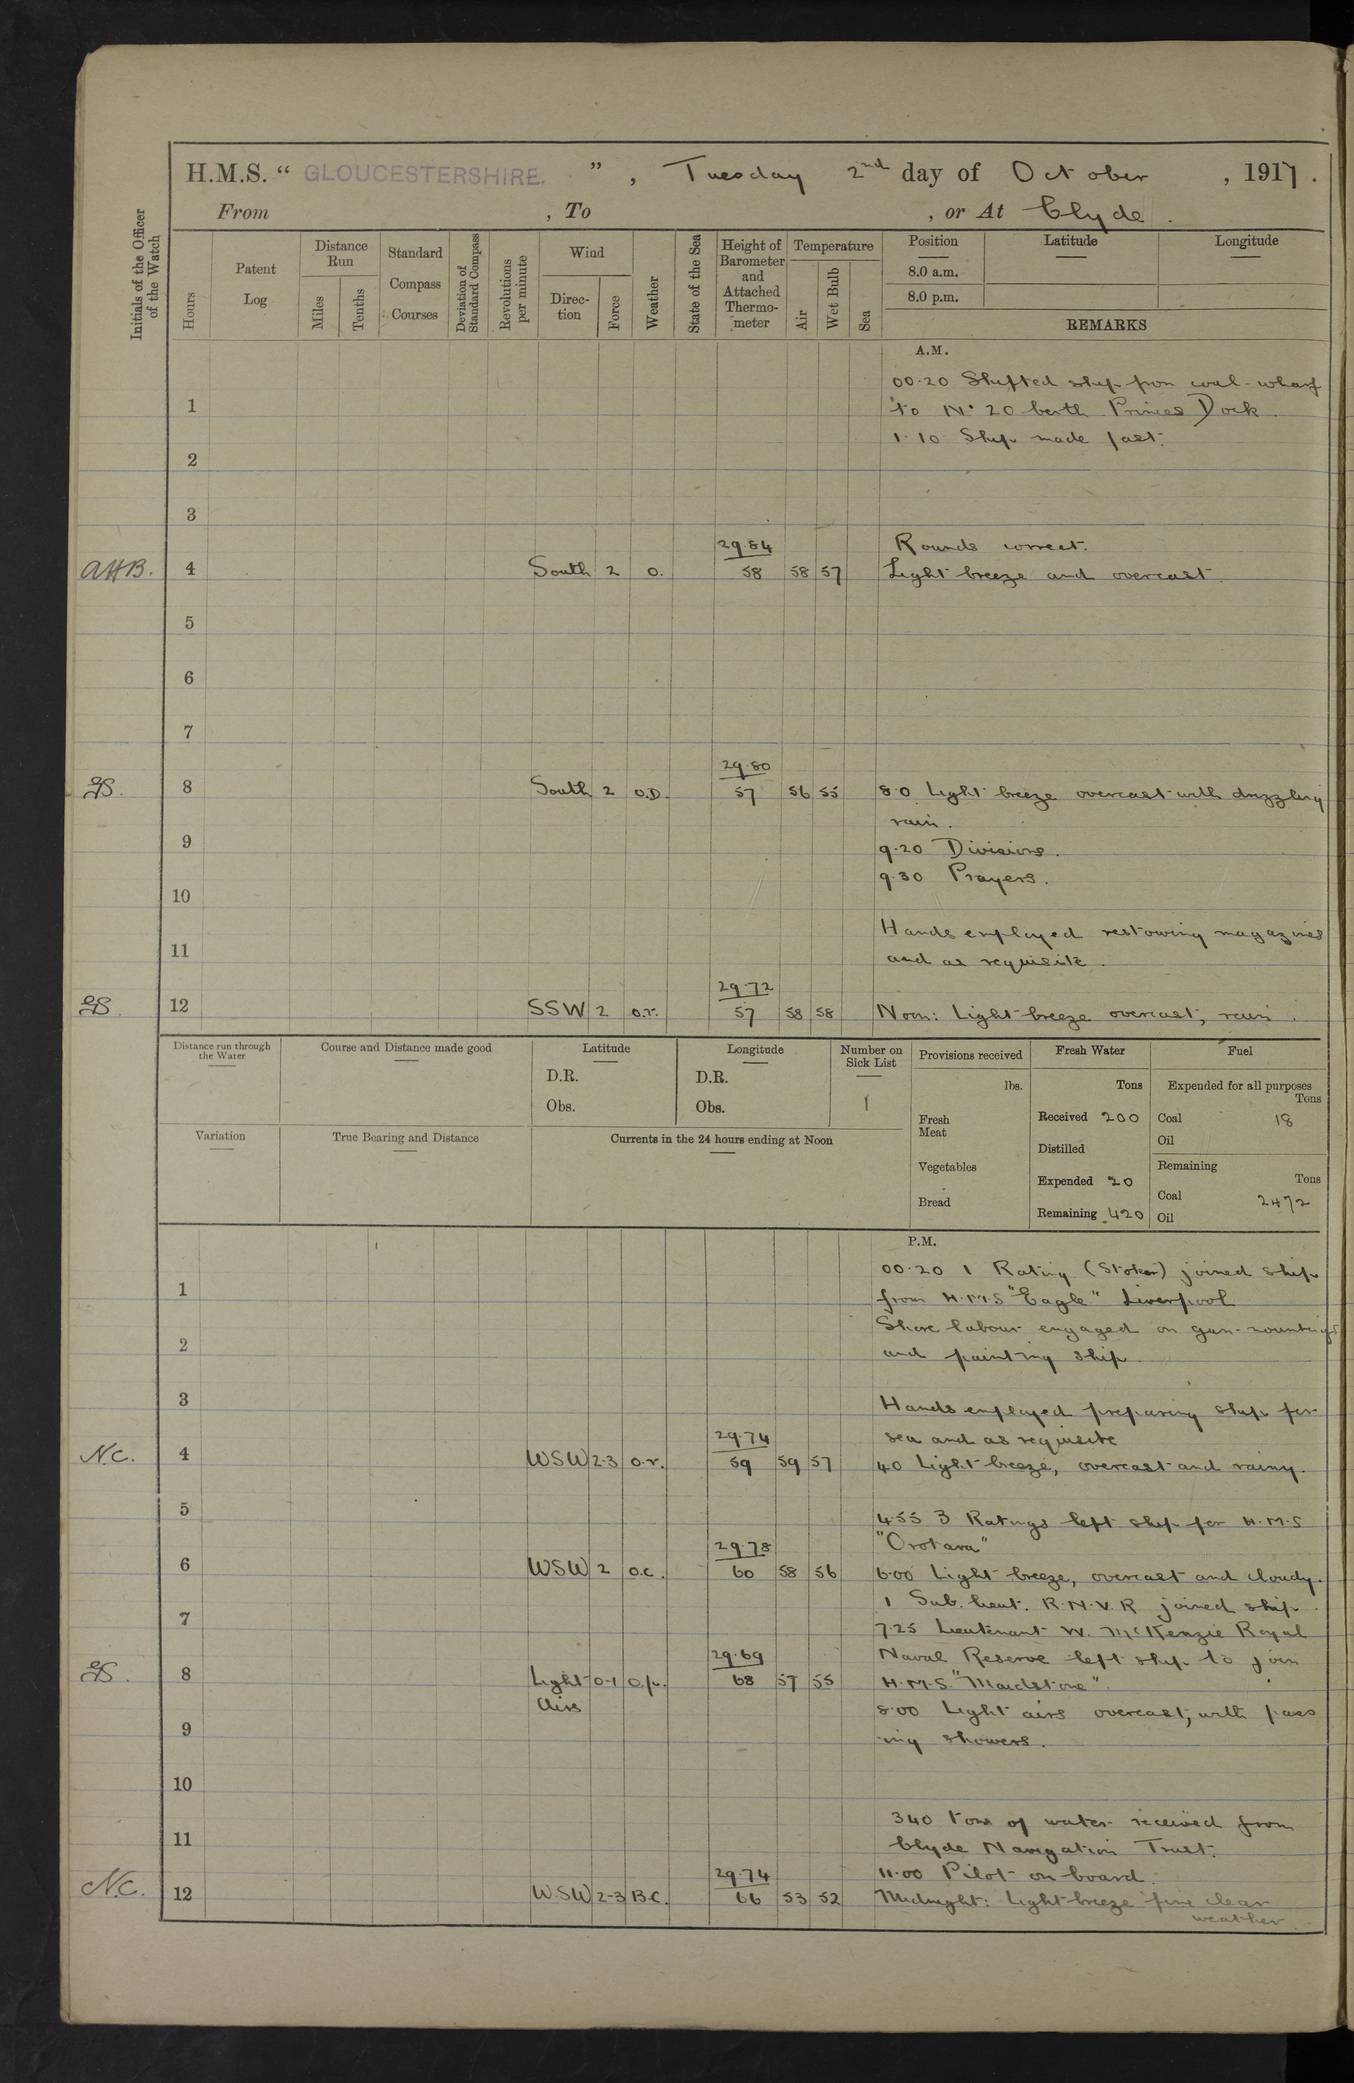 H.M.S. “ GLOUCESTERSHIRE. ” , Tuesday 2nd day of October , 1917 .
From , To , or At Clyde .
Initials of the Officer of the Watch
Hours
Patent Log
Distance Run
Miles
Tenths
Standard Compass Courses
Deviation of Standard Compass
Revolutions per minute
Wind
Direc-tion
Force
Weather
State of the Sea
Height of Barometer and Attached Thermo-meter
Temperature
Air
Wet Bulb
Sea
Position
8.0 a.m.
8.0 p.m.
Latitude
Longitude
REMARKS
A.M.
00.20 Shifted ship from coal wharf
1 to No 20 berth Princes Dock.
1.10 Ship made fast.
2
3
29.84 Rounds correct.
AHB. 4 South 2 o. 58 58 57 Light breeze and overcast.
5
6
7
29.80
8 South 2 O.D. 57 56 55 8.0 Light breeze overcast with drizzling
rain.
9 9.20 Divisions.
9.30 Prayers.
10
Hands employed restowing magazines
11 and as requisite.
29.72
12 SSW 2 o.r. 57 58 58 Noon: Light breeze overcast, rain.
Distance run through the Water
Course and Distance made good
Latitude
D.R.
Obs.
Longitude
D.R.
Obs.
Number on Sick List
1
Provisions received
lbs.
Fresh Meat
Vegetables
Bread
Fresh Water
Tons
Received 200
Distilled
Expended 20
Remaining 420
Fuel
Expended for all purposes
Tons
Coal 18
Oil
Remaining
Tons
Coal 2472
Oil
Variation
True Bearing and Distance
Currents in the 24 hours ending at Noon
P.M.
00.20 1 Rating (Stoker) joined ship
1 from H.M.S "Eagle" Liverpool
Shore labour engaged on gun-mountings
2 and painting ship.
3 Hands employed preparing ship for
29.74 sea and as requisite
N.C. 4 WSW 2-3 o.r. 59 59 57 4.0 Light breeze, overcast and rainy.
5 4.55 3 Ratings left ship for H.M.S
29.78 "Orotava"
6 WSW 2 o.c. 60 58 56 6.00 Light breeze, overcast and cloudy.
1 Sub. Lieut. R.N.V.R joined ship.
7 7.25 Lieutenant W. McKenzie Royal
29.69 Naval Reserve left ship to join
8 Light 0-1 o.p. 68 57 55 H.M.S. "Maidstone".
Airs 8.00 Light airs overcast, with pass
9 ing showers.
10
340 tons of water received from
11 Clyde Navigation Trust.
29.74 11.00 Pilot on board.
N.C. 12 W.SW 2-3 B.C. 66 53 52 Midnight: Light breeze fine clear
weather